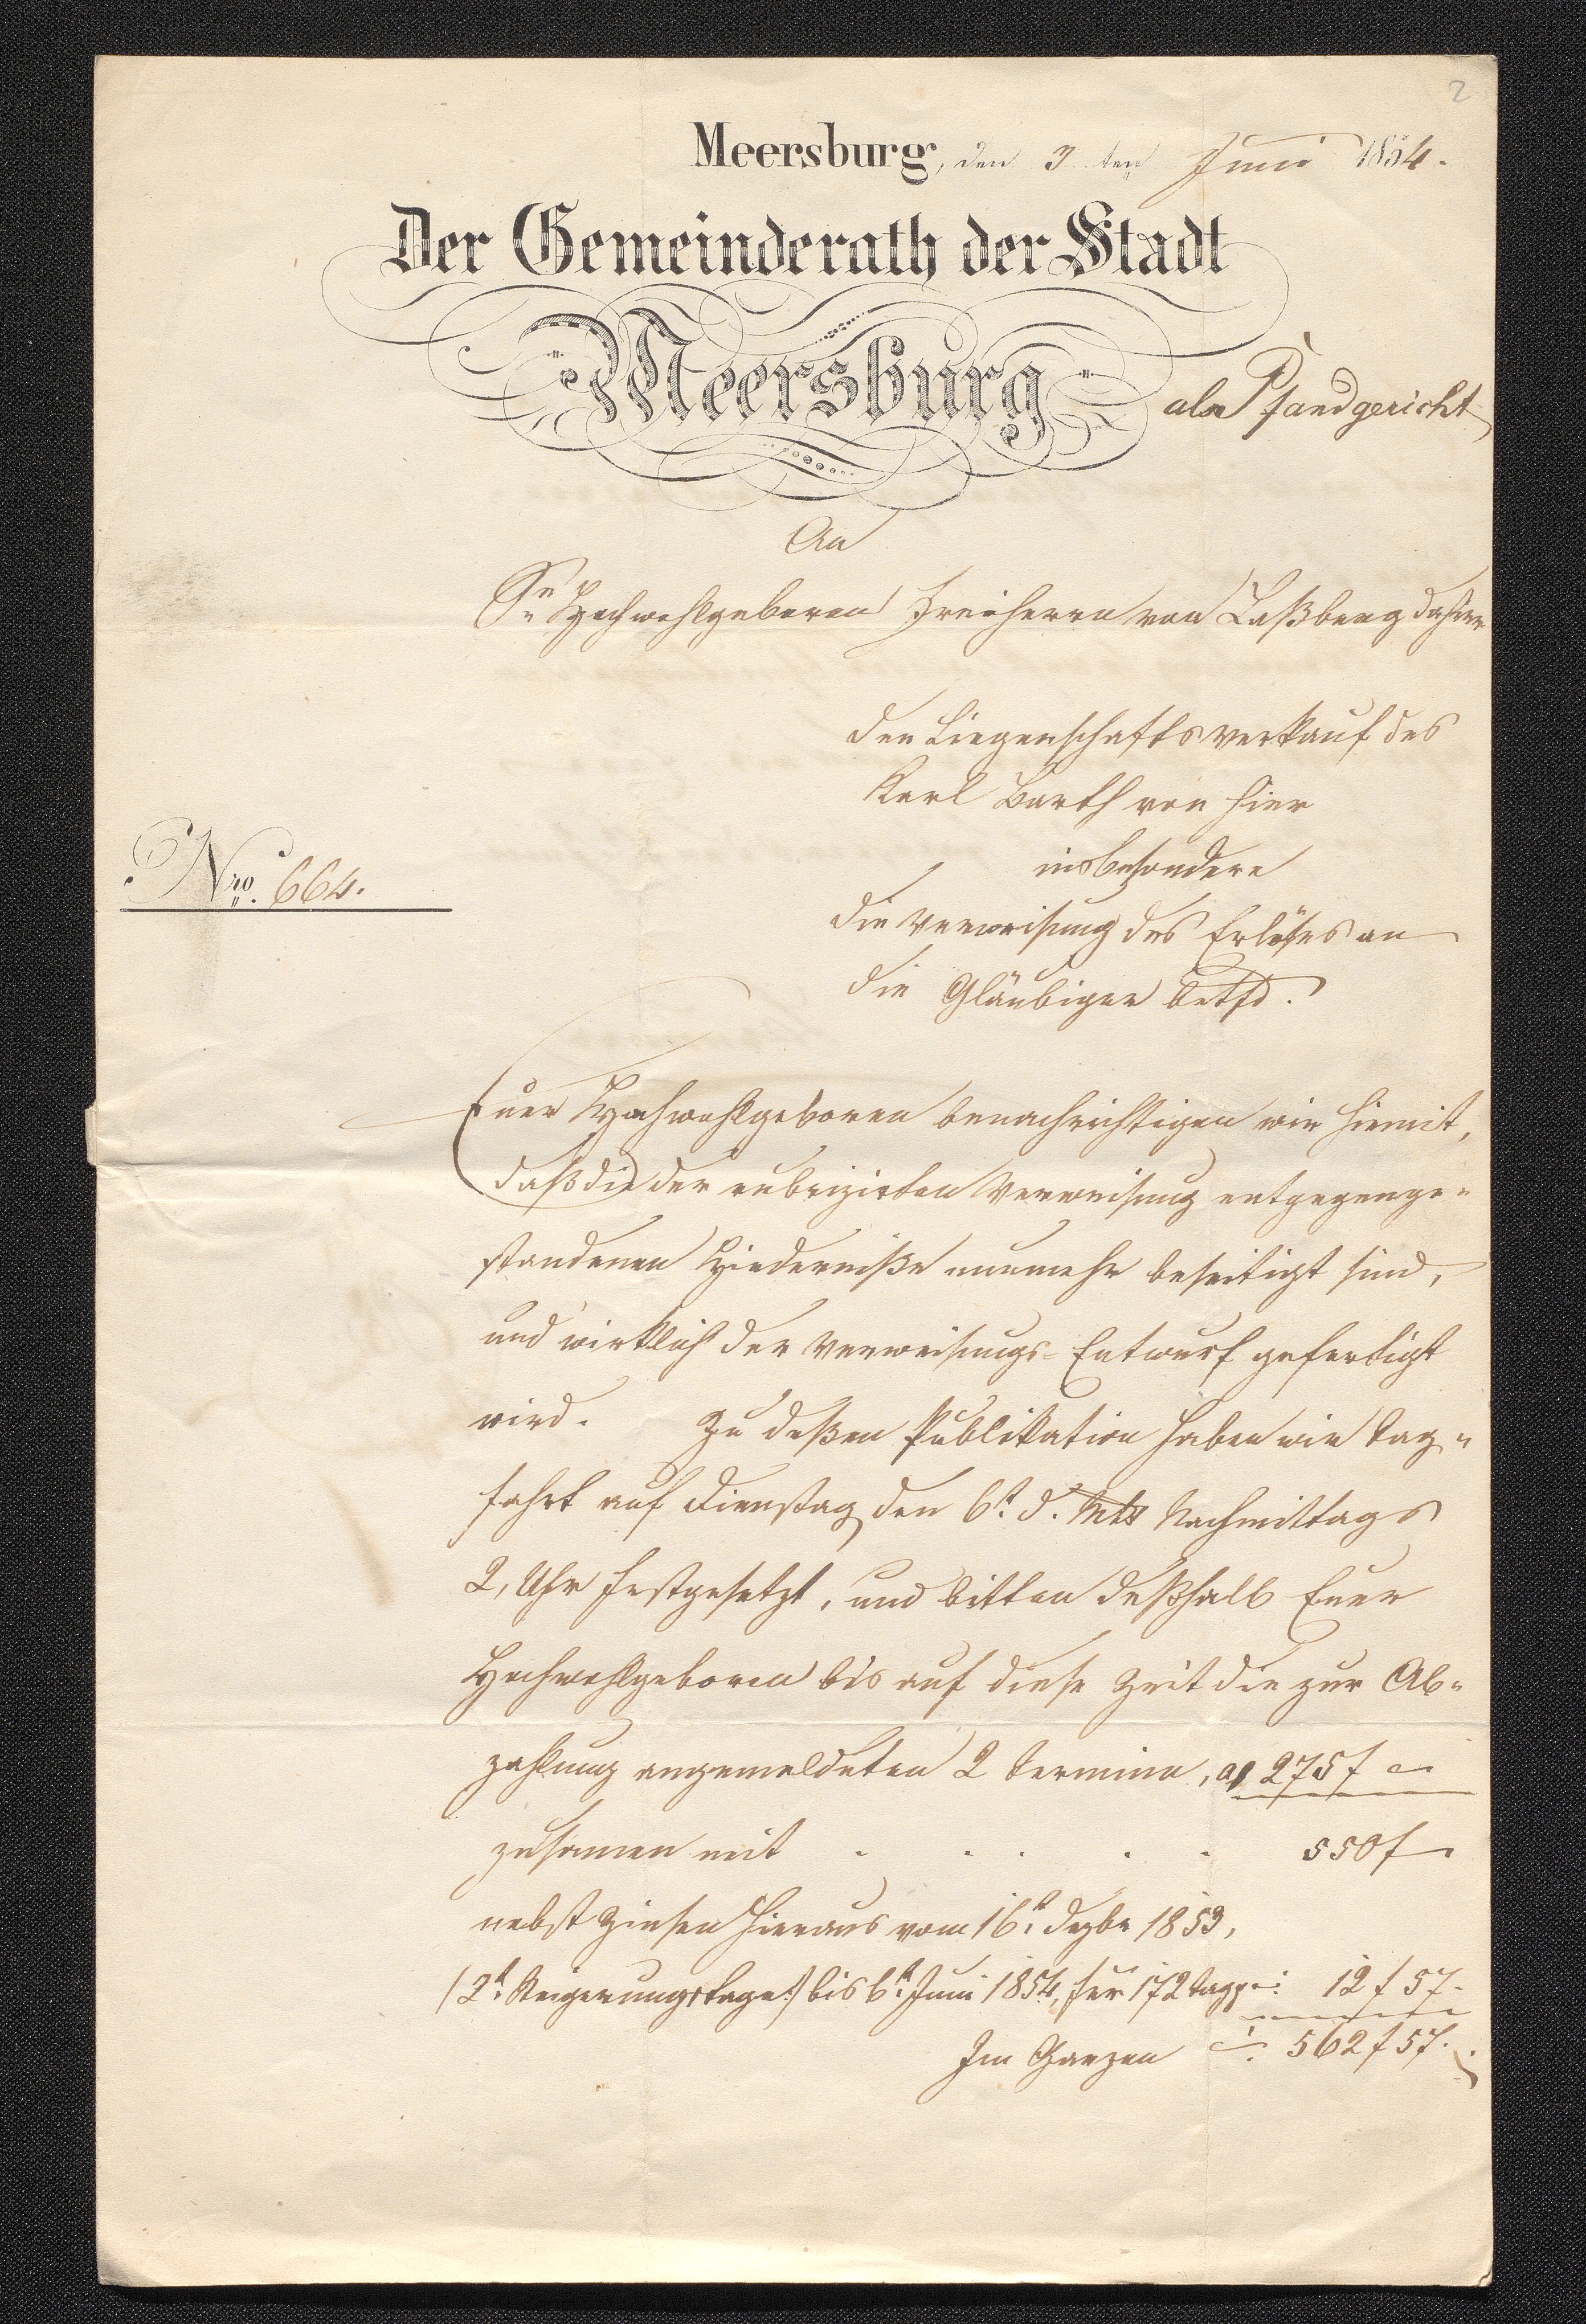 2
Meersburg, den 3ten Juni 1854.
Der Gemeinderath der Stadt
Meersburg als Pfandgericht
An
Sr Hochwohlgeboren Freiherrn von Laßberg dahier
den Liegenschaftsverkauf des
Karl Barth von hier
insbesondere
Nro. 664.
die Verweisung des Erlöses an
die Gläubiger betfd.
Euer Hochwohlgeboren benachrichtigen wir hiemit,
daß die der rubrizirten Verweisung entgegenge-
standenen Hinderniße nunmehr beseitigt sind,
und wirklich der Verweisungs-Entwurf gefertigt
wird. Zu deßen Publikation haben wir Tag-
fahrt auf Dienstag den 6t. d. Mts Nachmittags
2, Uhr festgesetzt, und bitten deßhalb Euer
Hochwohlgeboren bis auf diese Zeit die zur Ab-
zahlung angemeldeten 2 Termine, a 275 f –
zusamen mit . . . . . 550 f –
nebst Zinsen hieraus vom 16t. Dezbr 1853,
(2t. Steigerungstage) bis 6t. Juni 1854, für 172 Tage: 12 f 57.
Im Ganzen –: 562 f 57.